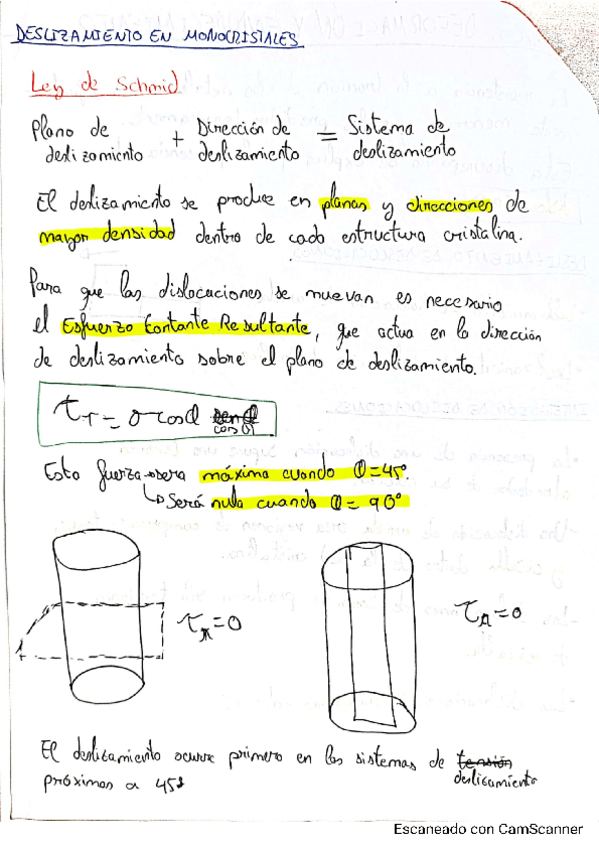 DESLIZAMIENTO EN MONOCRISTALES
Ley de Schmid
Plano de deslizamiento + Dirección de deslizamiento = Sistema de deslizamiento
El deslizamiento se produce en planos y direcciones de
mayor densidad dentro de cada estructura cristalina.
Para que las dislocaciones se muevan es necesario
el Esfuerzo Cortante Resultante, que actua en la dirección
de deslizamiento sobre el plano de deslizamiento.
τr = σ cos
Esta fuerza será máxima cuando θ=45°.
↳ Será nula cuando θ= 90°
=0
=0
El deslizamiento ocurre primero en los sistemas de tensión deslizamiento
próximos a 45º
Escaneado con CamScanner